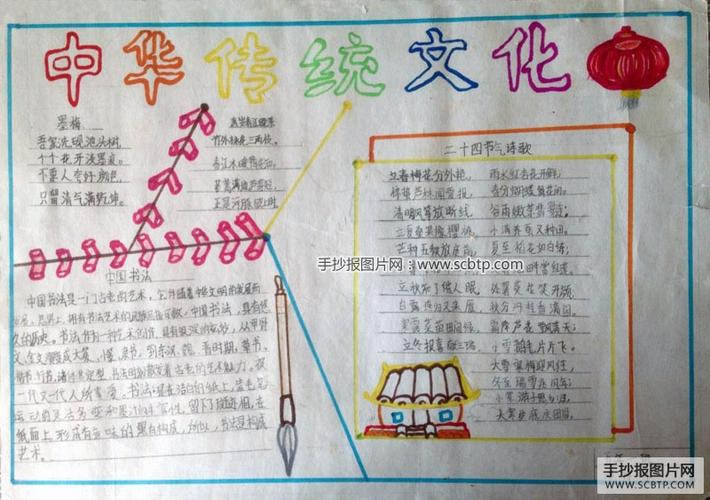 中华传统文化
墨梅
吾家洗砚池头树
个个花开淡墨痕
不要人夸好颜色
只留清气满乾坤
竹外桃花三两枝
春江水暖鸭先知
蒌蒿满地芦芽短
正是河豚欲上时
中国书法
中国书法是一门古老的艺术,它伴随着中华文明的发展而
发展,世界上,拥有书法艺术的民族屈指可数,中国书法,具有悠
久的历史。书法作为一种艺术创作,具有极深的玄妙,从甲骨
文、金文演变成大篆、小篆、隶书、到东汉、魏、晋时期,草书、
楷书、行书,诸体基定型,书法时刻散发着古老的艺术魅力,被
一代又一代人所喜爱。书法是在洁白的纸上,靠毛笔
运动的灵活多变和墨汁的丰富性,留下斑斑迹相,在
纸面上形成有意味的黑白构成,所以,书法是构成
艺术。
二十四节气诗歌
立春梅花分外艳, 雨水红杏花开鲜;
惊蛰芦林闻雷报, 春分蝴蝶舞花间。
清明风筝放断线, 谷雨嫩茶翡翠连;
立夏桑果像樱桃, 小满养蚕又种田。
芒种玉秧放庭前, 夏至稻花如白练;
畔赏红莲。
立秋知了催人眠, 处暑葵花笑开颜;
白露燕归又来雁, 秋分丹桂香满园。
寒露菜苗田间绿, 霜降芦花飘满天;
立冬报喜献三瑞, 小雪鹅毛片片飞。
大雪寒梅迎风狂,
冬至瑞雪兆丰年;
小寒游子思乡归,
大寒岁底庆团圆。
手抄报图片网 www.scbtp.com
手抄报图片网
SCBTP.COM